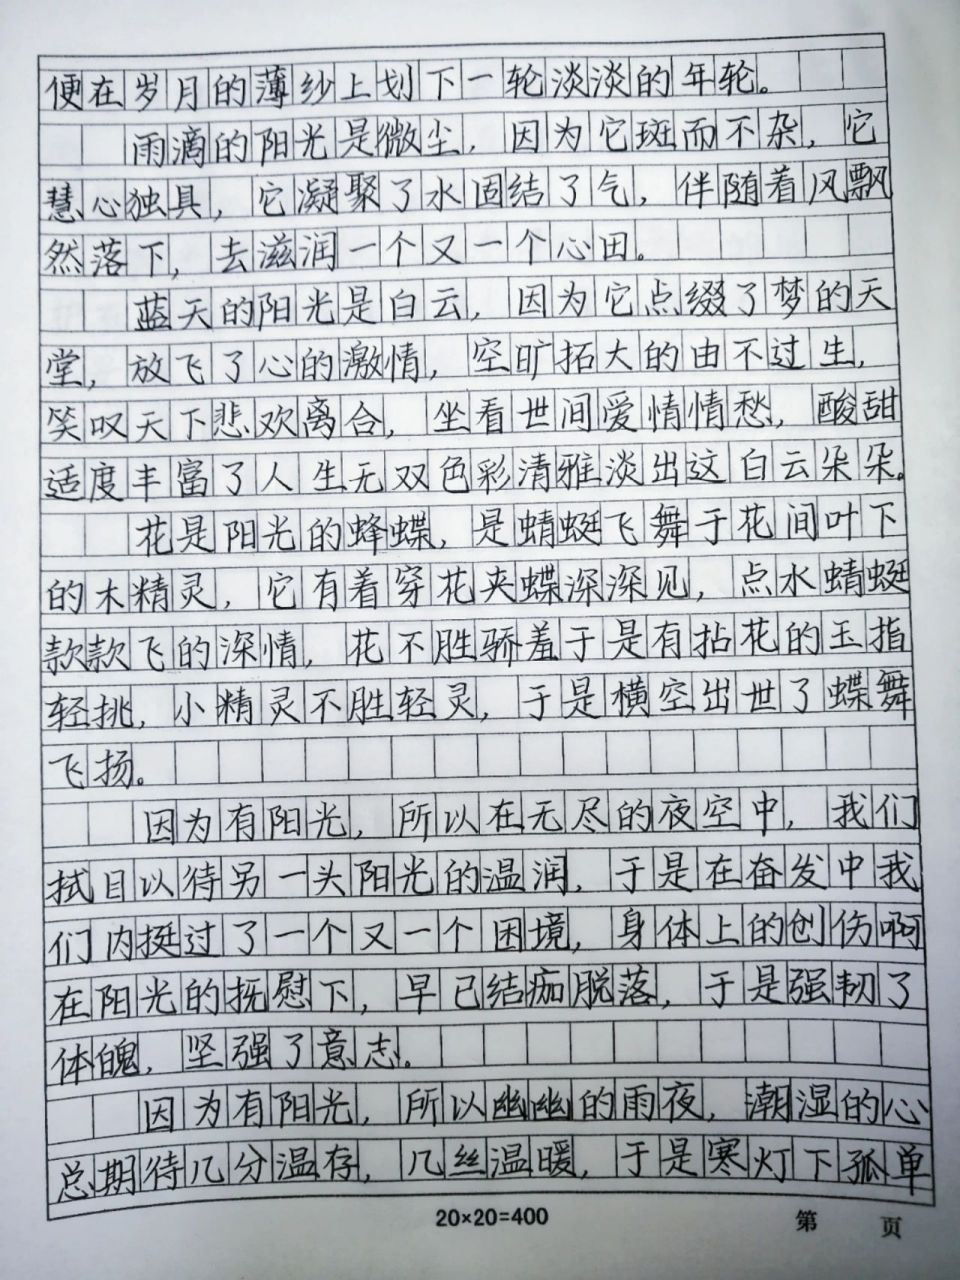 便在岁月的薄纱上划下一轮淡淡的年轮。
雨滴的阳光是微尘，因为它斑而不杂，它
慧心独具，它凝聚了水固结了气，伴随着风飘
然落下，去滋润一个又一个心田。
蓝天的阳光是白云，因为它点缀了梦的天
堂，放飞了心的激情，空旷拓大的由不过生，
笑叹天下悲欢离合，坐看世间爱情情愁，酸甜
适度丰富了人生无双色彩清雅淡出这白云朵朵。
花是阳光的蜂蝶，是蜻蜓飞舞于花间叶下
的木精灵，它有着穿花夹蝶深深见，点水蜻蜓
款款飞的深情，花不胜骄羞于是有拈花的玉指
轻挑，小精灵不胜轻灵，于是横空出世了蝶舞
飞扬。
因为有阳光，所以在无尽的夜空中，我们
拭目以待另一头阳光的温润，于是在奋发中我
们内挺过了一个又一个困境，身体上的创伤啊
在阳光的抚慰下，早已结痂脱落，于是强韧了
体魄，坚强了意志。
因为有阳光，所以幽幽的雨夜，潮湿的心
总期待几分温存，几丝温暖，于是寒灯下孤单
20×20=400
第 页